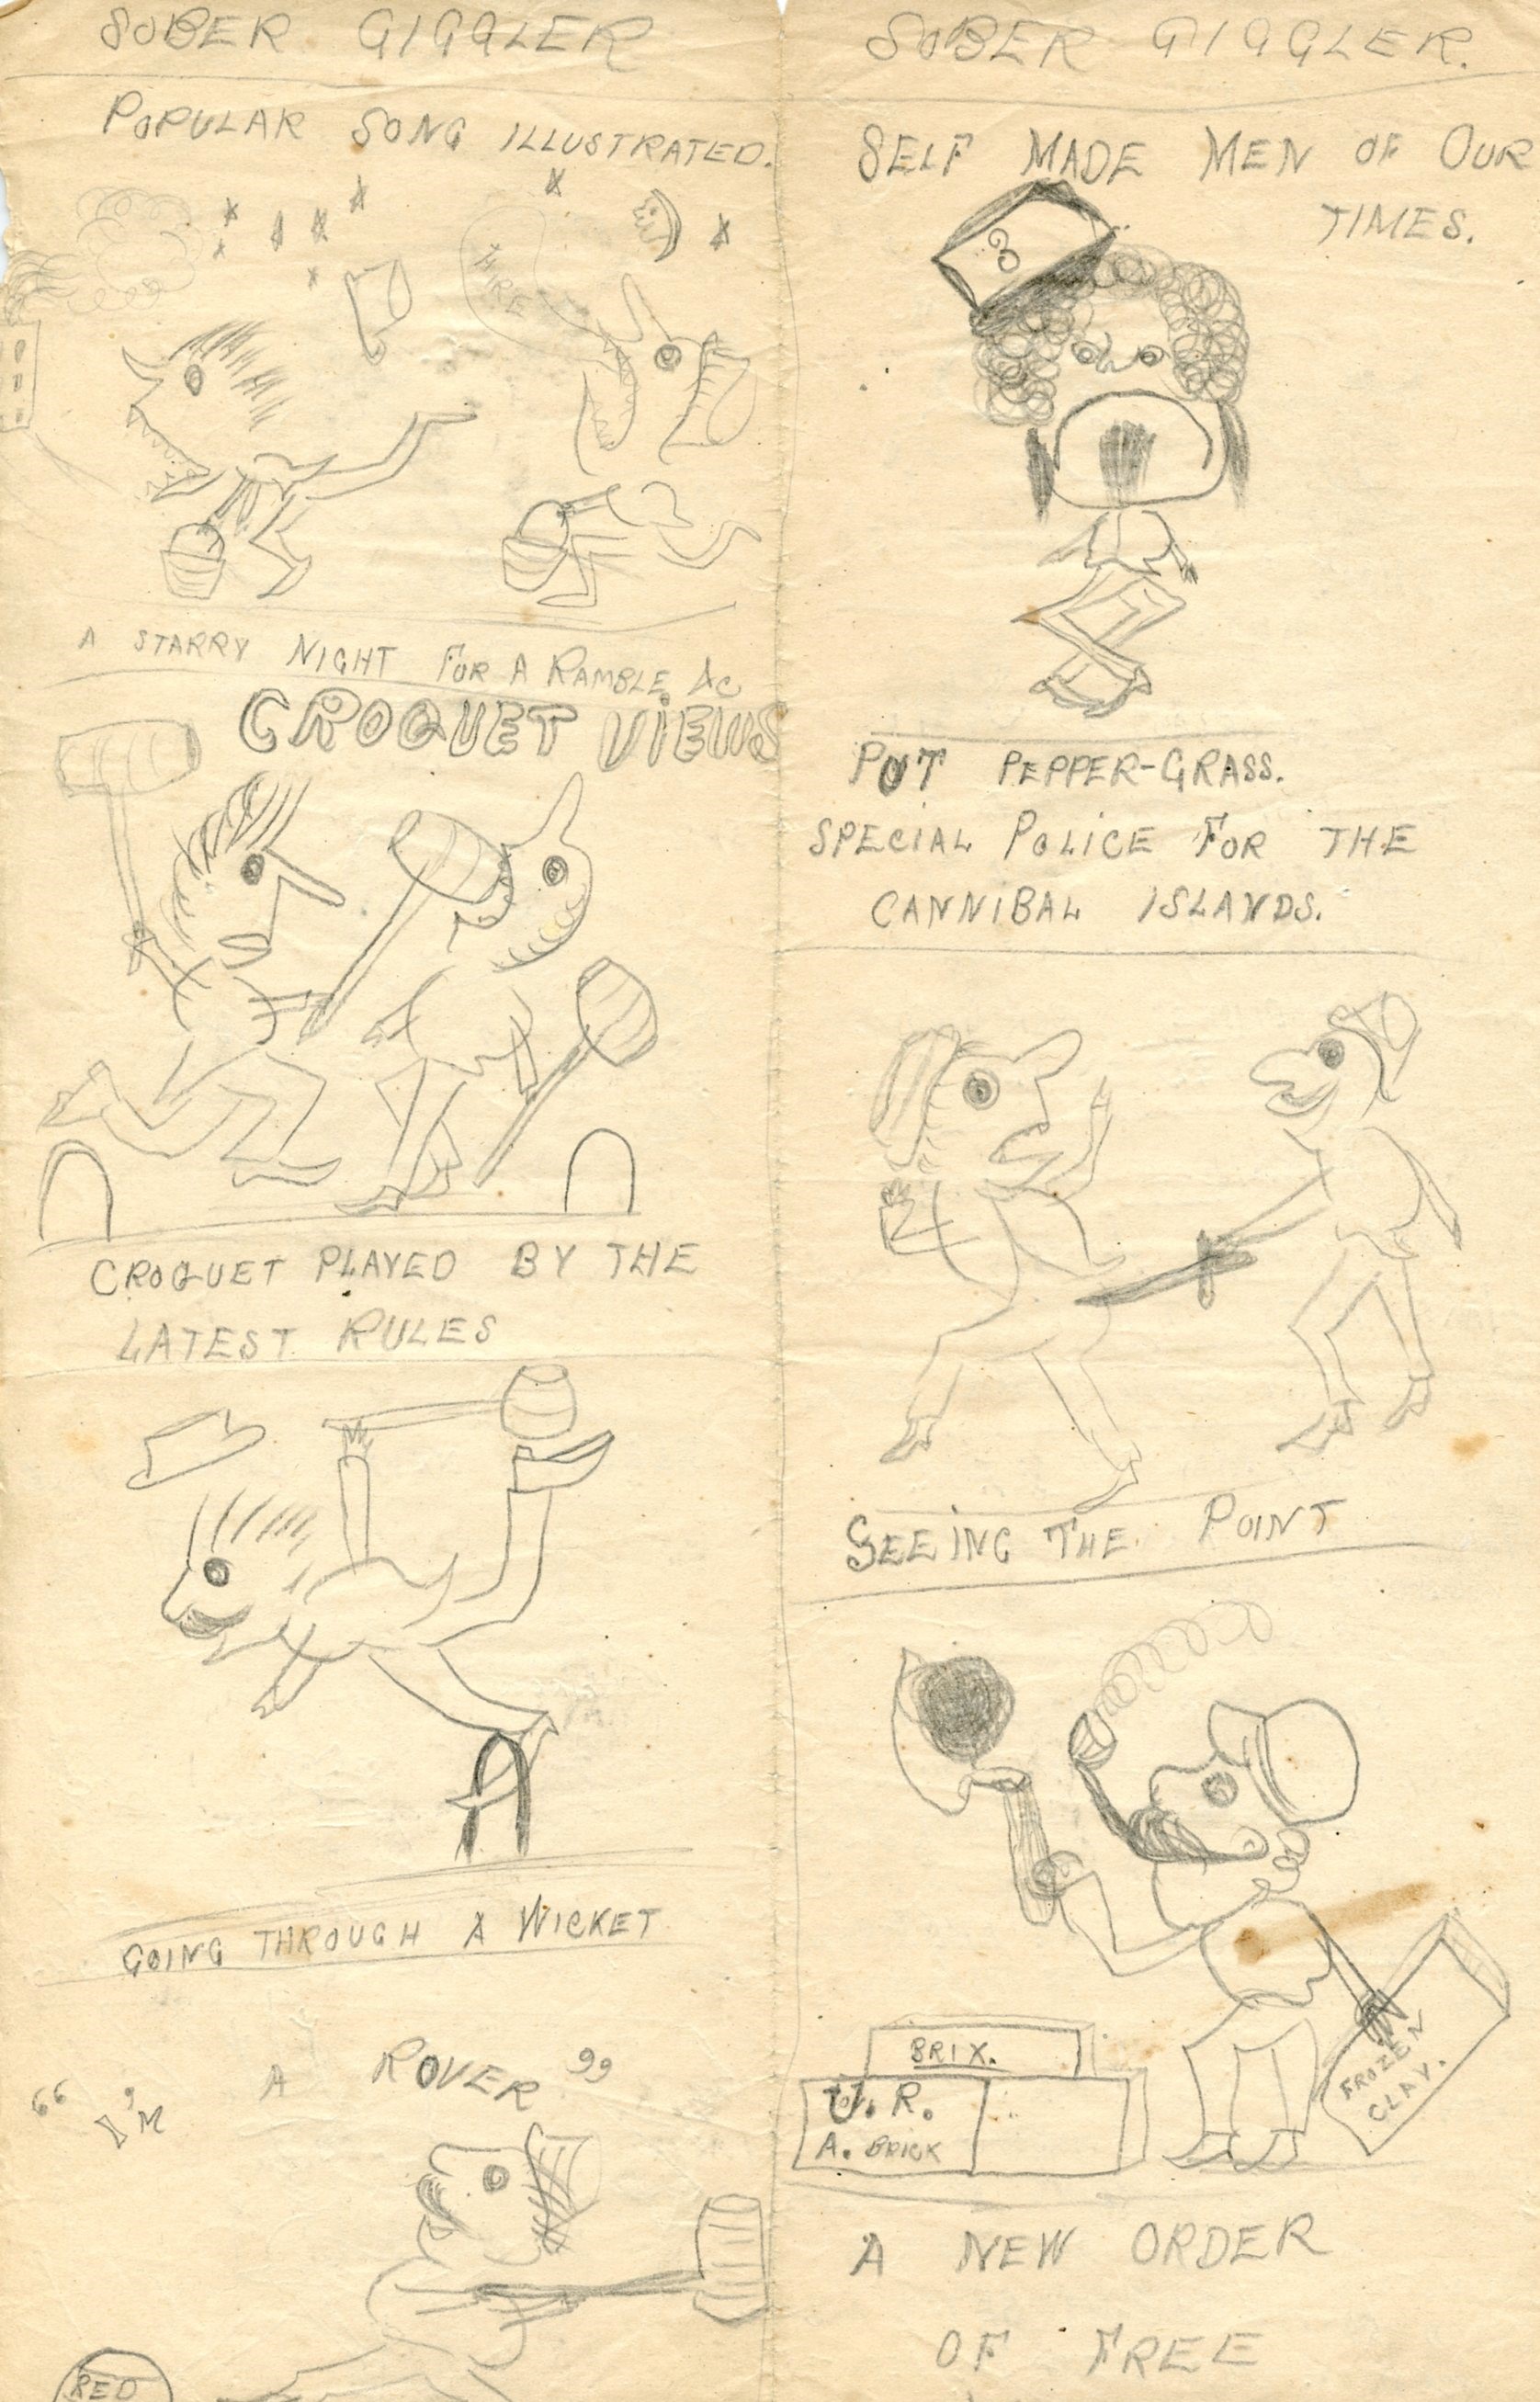 SOBER GIGGLER
POPULAR SONG ILLUSTRATED.
FIRE
A STARRY NIGHT FOR A RAMBLE &C
CROQUET VIEWS
CROQUET PLAYED BY THE
LATEST RULES
GOING THROUGH A WICKET
"I'M A ROVER"
RED
SOBER GIGGLER.
SELF MADE MEN OF OUR
TIMES.
3
PUT PEPPER-GRASS.
SPECIAL POLICE FOR THE
CANNIBAL ISLANDS.
SEEING THE POINT
BRIX.
U. R.
A. BRICK
FROZEN
CLAY.
A NEW ORDER
OF FREE